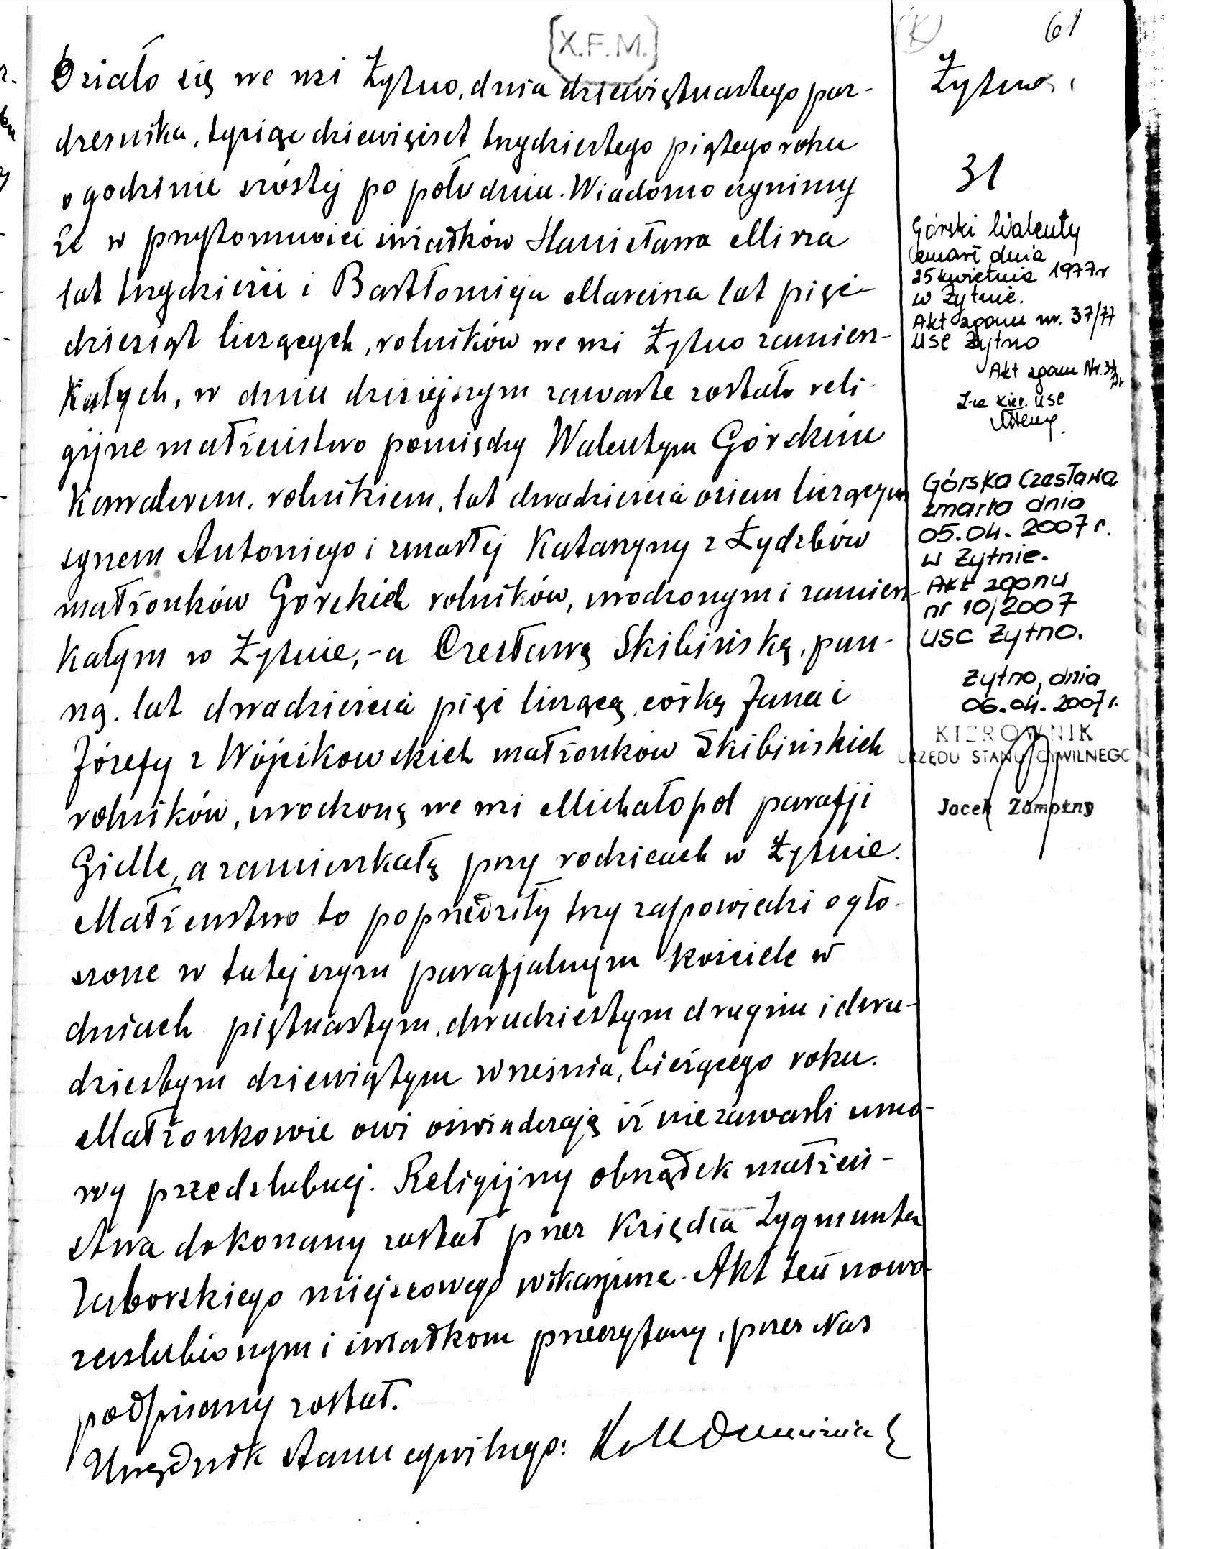 [X.F.M.]
61
Działo się we wsi Żytno, dnia dziewiętnastego paz-
dziernika, tysiąc dziewięćset trzydziestego piątego roku
o godzinie szóstej po południu. Wiadomo czynimy
że w przytomności świadków Stanisława Misza
lat trzydzieści i Bartłomieja Marcina lat pięć-
dziesiąt liczących, rolników we wsi Żytno zamiesz-
kałych, w dniu dzisiejszym zawarte zostało reli-
gijne małżeństwo pomiędzy Walentym Górskim
kawalerem, rolnikiem, lat dwadzieścia osiem liczącym
synem Antoniego i zmarłej Katarzyny z Łydzbów
małżonków Górskich rolników, urodzonym i zamiesz-
kałym w Żytnie, - a Czesławą Skibińską, pan-
ną. lat dwadzieścia pięć liczącą, córką Jana i
Józefy z Wójcikowskich małżonków Skibińskich
rolników, urodzoną we wsi Michałopol parafji
Gidle, a zamieszkałą przy rodzicach w Żytnie.
Małżeństwo to poprzedziły trzy zapowiedzi ogło-
szone w tutejszym parafjalnym kościele w
dniach piętnastym, dwudziestym drugim i dwu-
dziestym dziewiątym września, bieżącego roku.
Małżonkowie owi oświadczają iż nie zawarli umo-
wy przedślubnej. Religijny obrządek małżeń-
stwa dokonany został przez Księdza Zygmunta
Zaborskiego miejscowego wikarjusza. Akt ten nowo
zaślubionym i świadkom przeczytany, przez Nas
podpisany został.
Urzędnik stanu cywilnego:
Żytno
31
Górski Walenty
zmarł dnia
25 kwietnia 1977r
w Żytnie.
Akt zgonu nr. 37/77
USC Żytno
Akt zgonu Nr.
Z-ca Kier. USC
Górska Czesława
zmarła dnia
05.04.2007 r.
w Żytnie.
Akt zgonu
nr 10/2007
USC Żytno.
Żytno, dnia
06.04.2007r.
KIEROWNIK
URZĘDU STANU CYWILNEGO
Jacek Zamożny